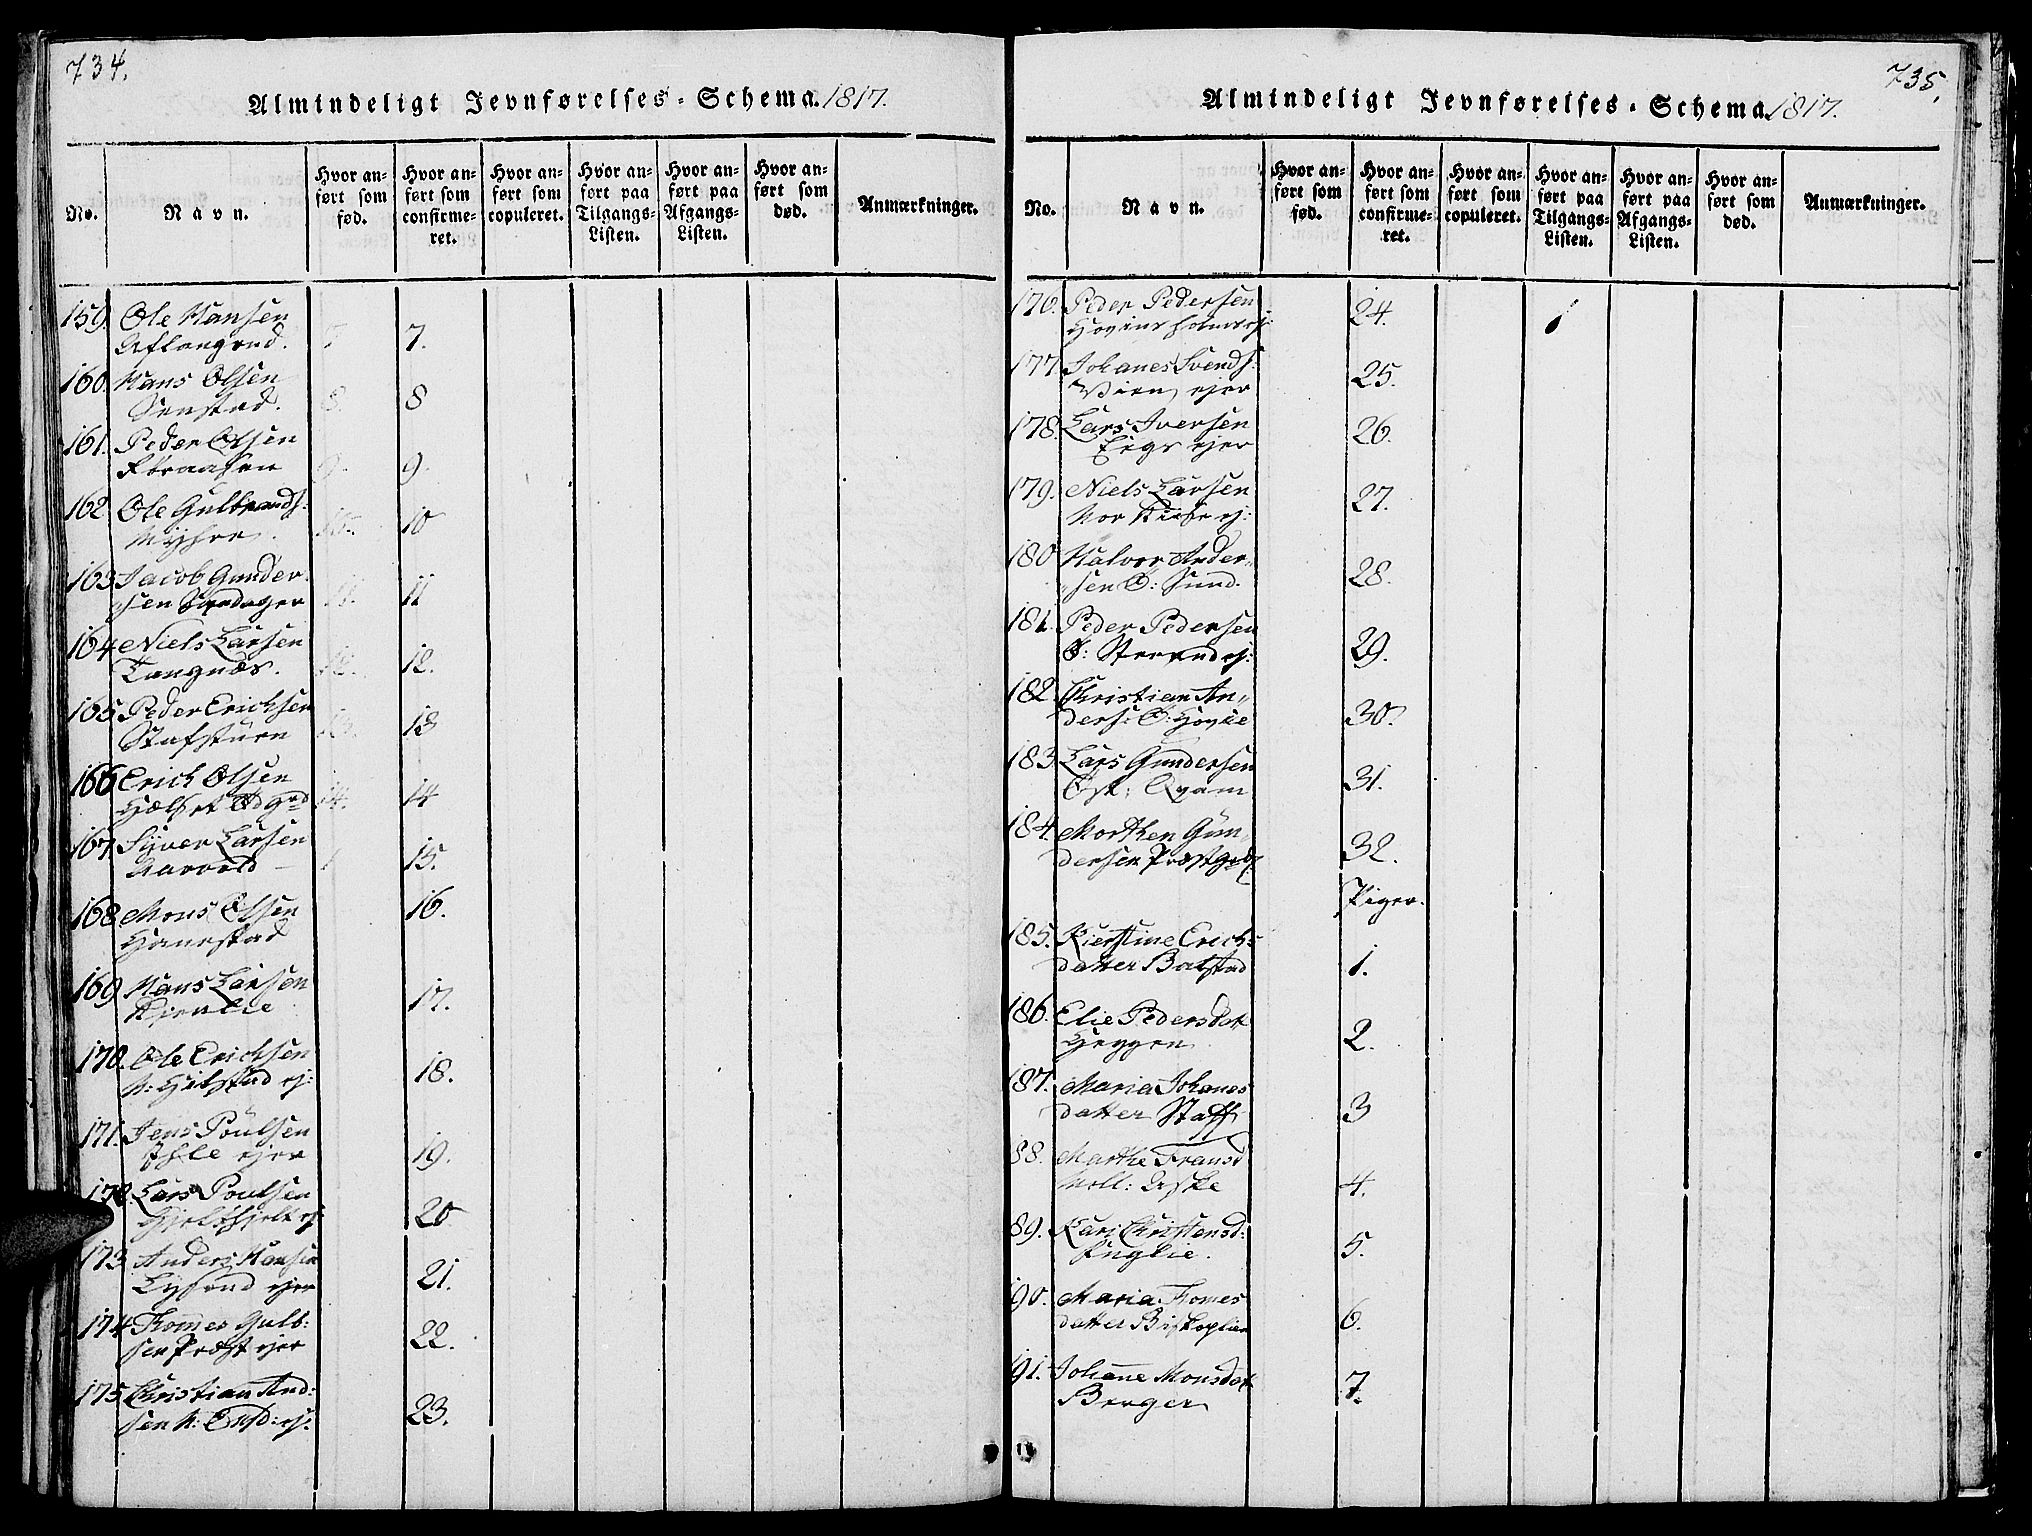 734.
Almindeligt Jevnførelses-Schema. 1817.
No.
Navn.
Hvor anført som fød.
Hvor anført som confirmeret.
Hvor anført som copuleret.
Hvor anført paa Tilgangs-Listen.
Hvor anført paa Afgangs-Listen.
Hvor anført som død.
Anmærkninger.
159. Ole Hansen
7.
160. Hans Olsen
Senstad. 8
161. Peder Olsen
9.
162 Ole Gulbrands:
10
163 Jacob Gunder-
sen 11
164 Niels Larsen
Tangnæs. 12.
165 Peder Erichsen
13
166 Erich Olsen
14
167 Syver Larsen
15.
168 Mons Olsen 16.
Hanestad
169 Hans Larsen
17.
170. Ole Erichsen
18.
171. Jens Poulsen
ejer 19.
172 Lars Poulsen
20
173 Anders Hansen
ejer 21.
174 Tomes Gulb:
sen Præst ejer 22.
175 Christian And:
sen 23.
735.
Almindeligt Jevnførelses-Schema. 1817.
No.
Navn.
Hvor anført som fød.
Hvor anført som confirmeret.
Hvor anført som copuleret.
Hvor anført paa Tilgangs-Listen.
Hvor anført paa Afgangs-Listen.
Hvor anført som død.
Anmærkninger.
176. Peder Pedersen 24. 1
177 Johanes Svends:
ejer 25.
178. Lars Iversen 26.
ejer
179. Niels Larsen 27.
180 Halvor Ander-
sen Ø: Sund. 28.
181. Peder Pedersen
29.
182. Christian An-
ders: 30.
183. Lars Gundersen
Øst: Qvam 31.
184. Morthen Gun-
dersen Præstgrd. 32.
Piger.
185. Kierstine Erichs
datter 1.
186. Elie Pedersdat
2.
187. Maria Johanes
datter Staff 3
88. Marthe Fransd
4.
89. Kari Christensd:
Fuglie. 5.
90. Maria Tomes
datter Biskoplien 6.
91. Johanne Monsdat
Berger 7.